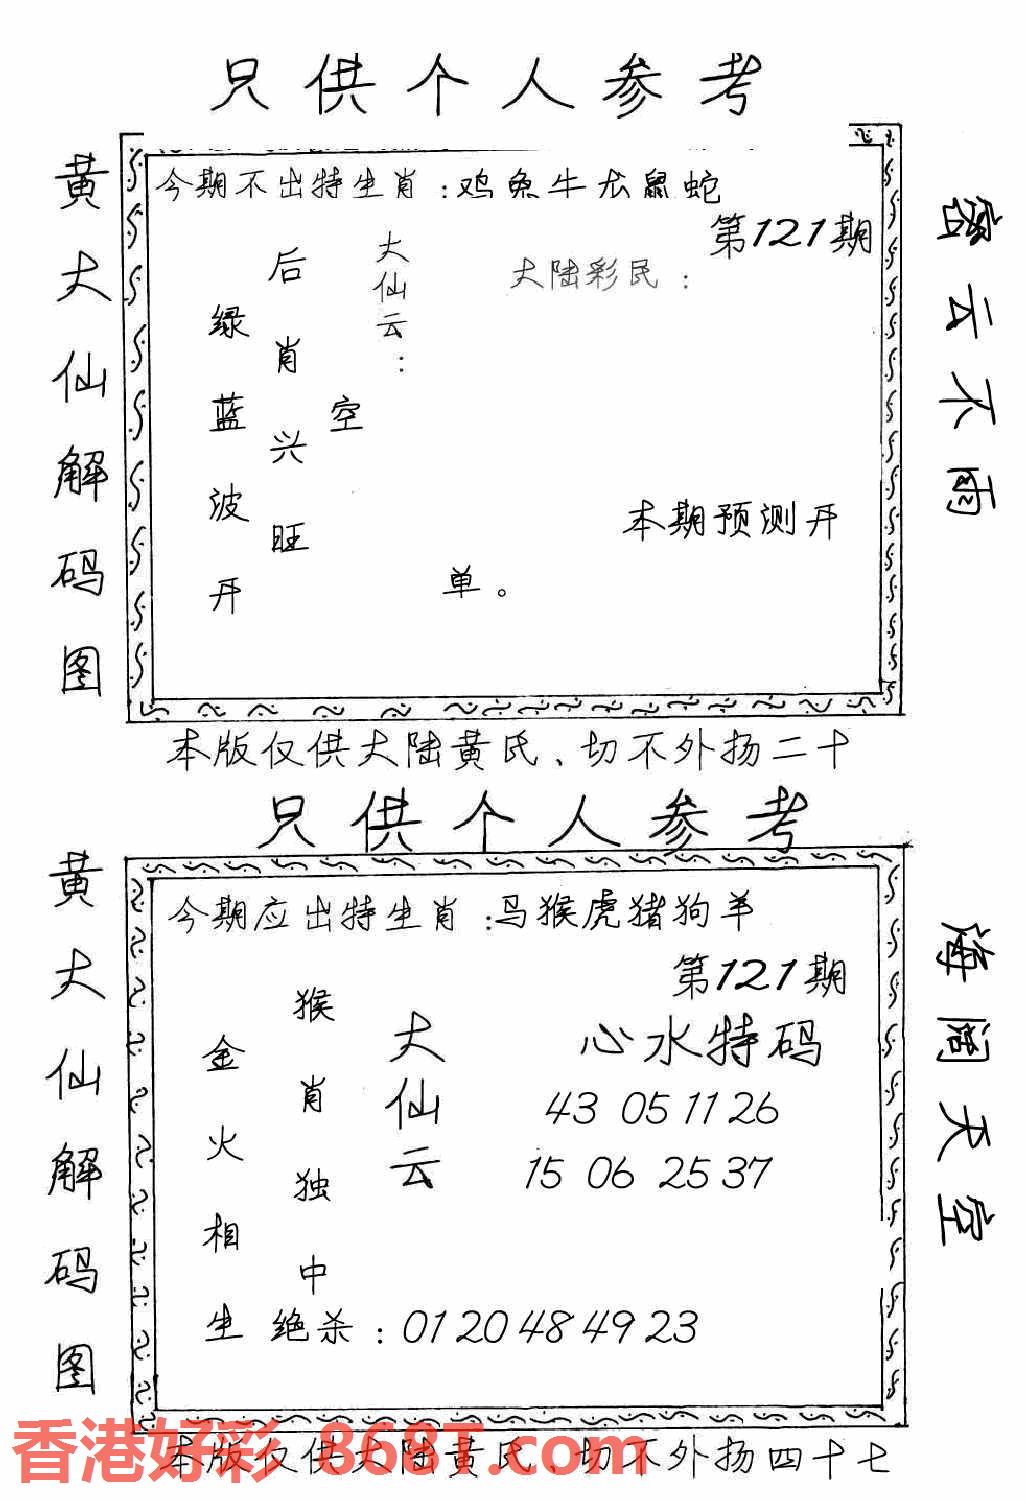 只供个人参考
黄大仙解码图
今期不出特生肖:鸡兔牛龙鼠蛇
第121期
大陆彩民:
大仙云:
后肖兴旺
绿蓝波开
空
单。
本期预测开
云不雨
本版仅供大陆黄氏、切不外扬二十
只供个人参考
黄大仙解码图
今期应出特生肖:马猴虎猪狗羊
第121期
心水特码
43 05 11 26
15 06 25 37
大仙云
猴肖独中
金火相生
绝杀:01 20 48 49 23
海阔天空
本版仅供大陆黄氏、切不外扬四十七
香港好彩 868T.com